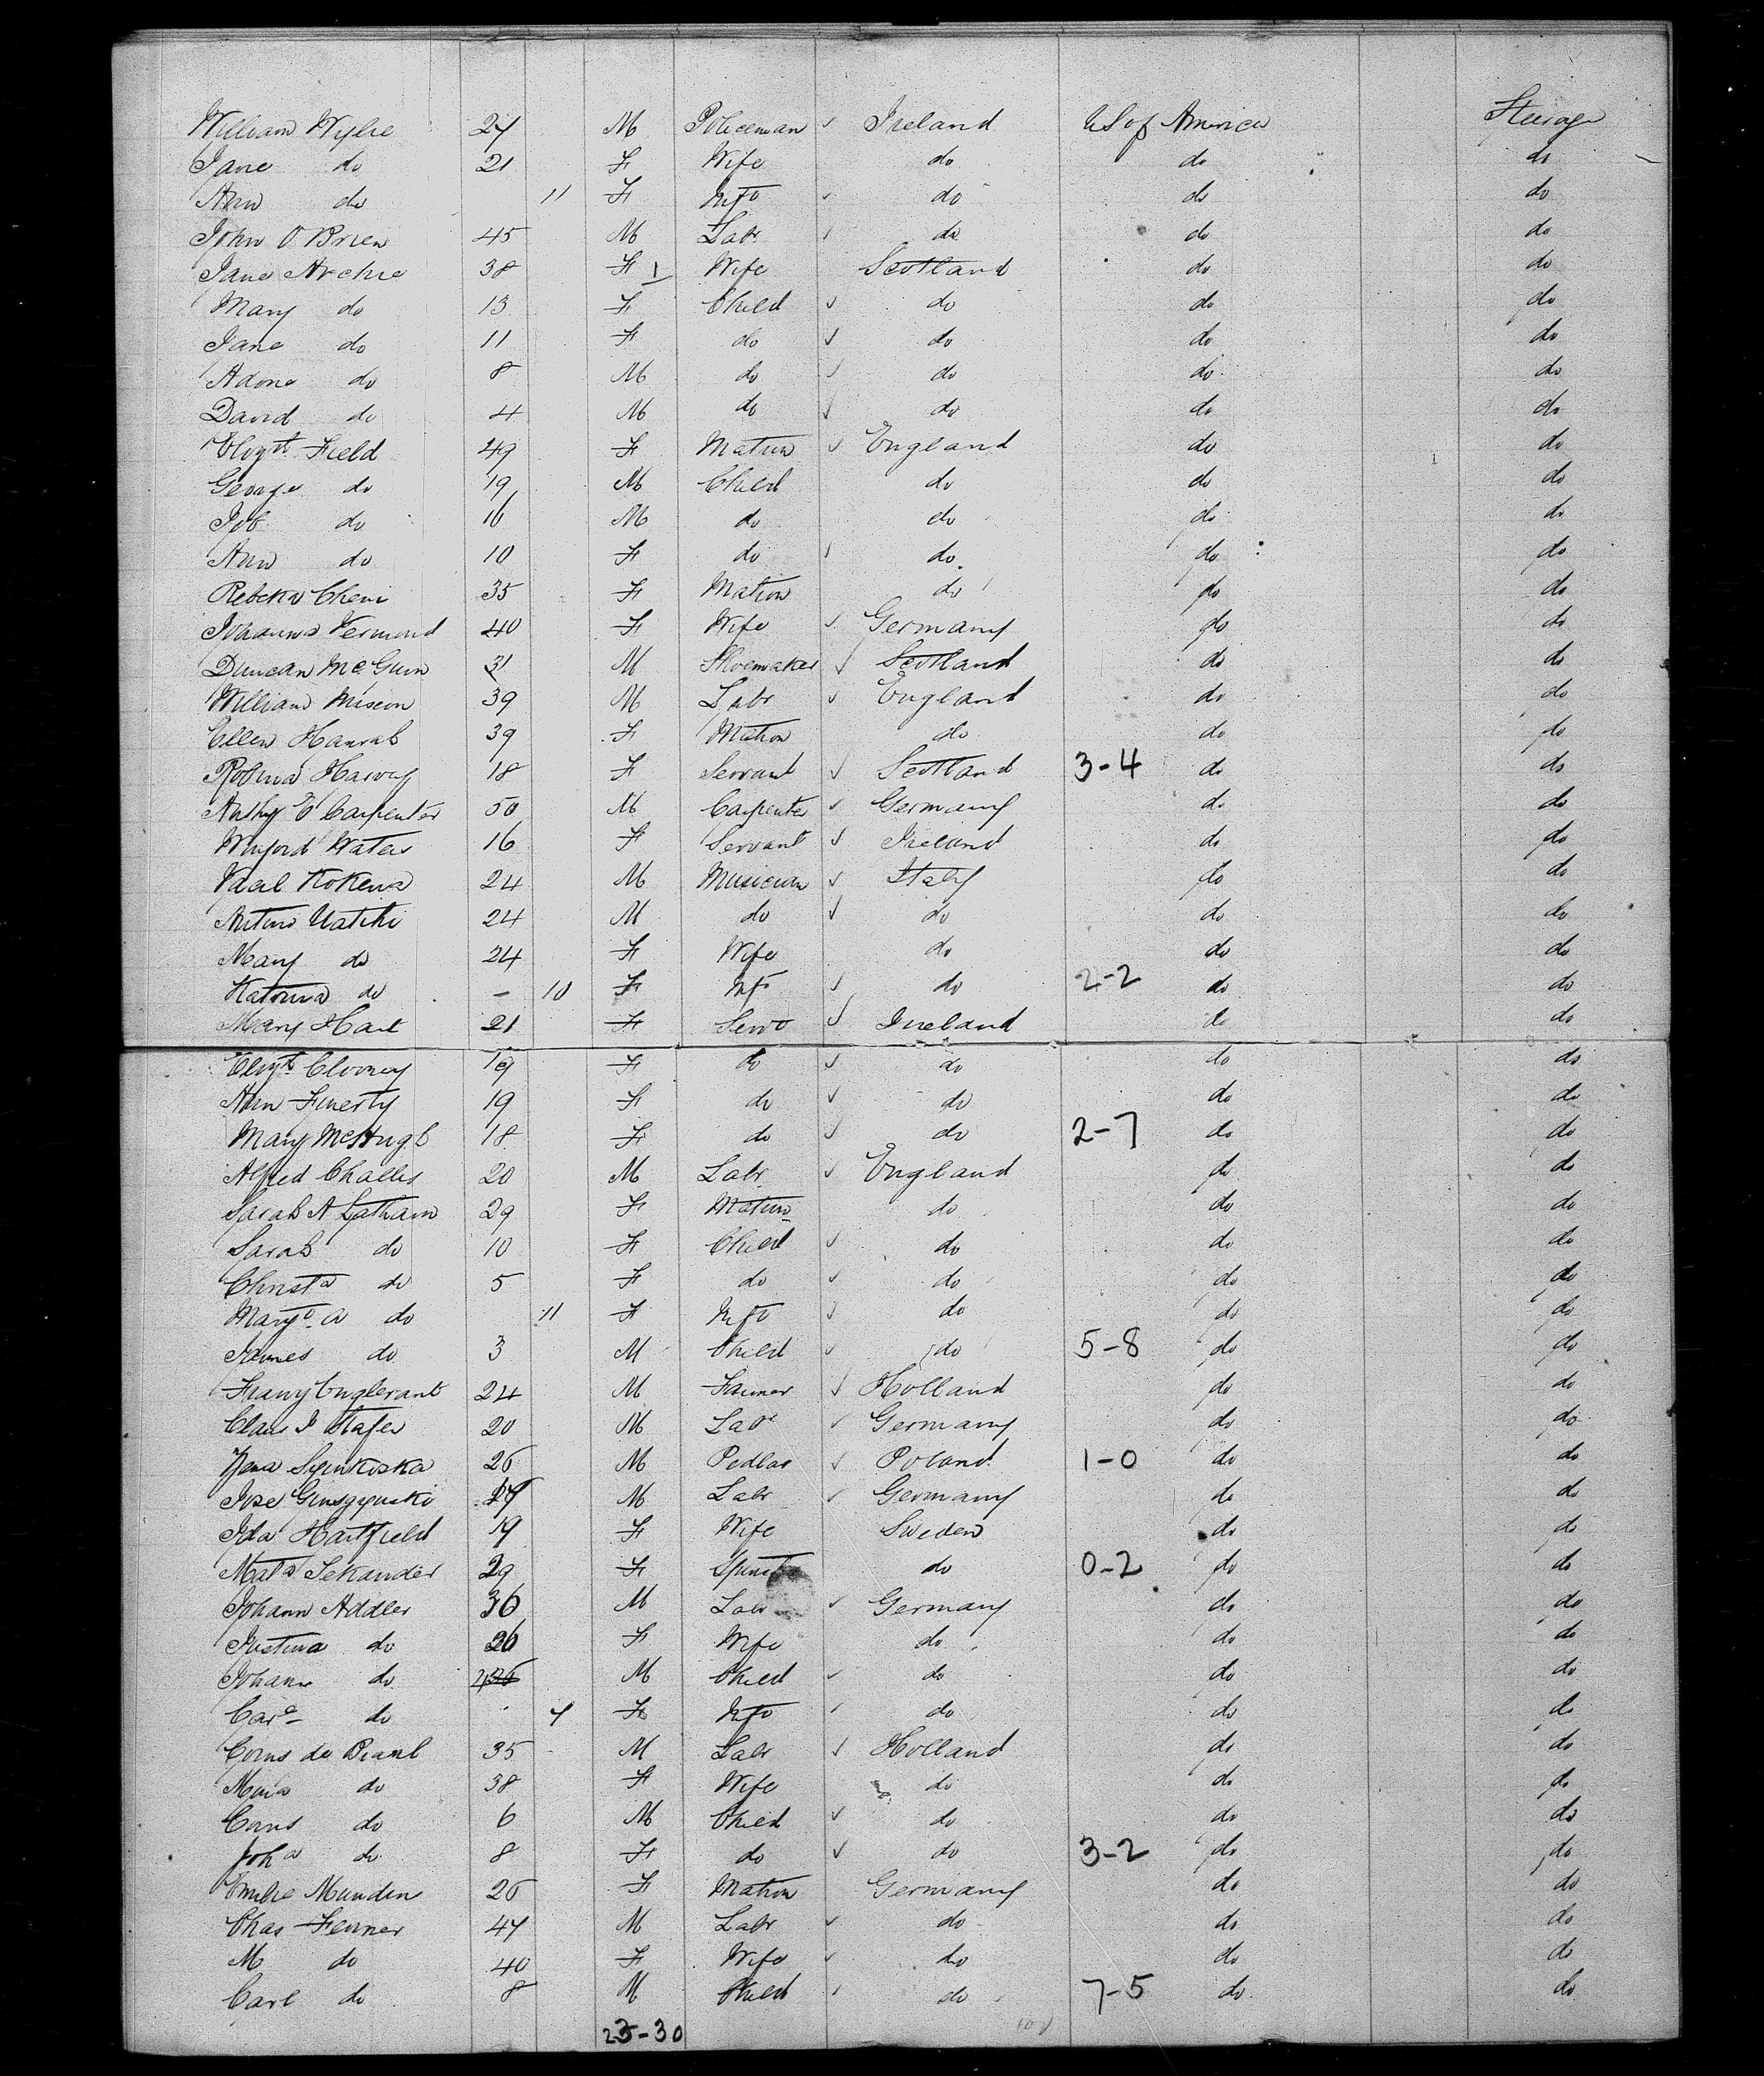 William Wylie 27 M Policeman ✓ Ireland US of America Steerage
Jane do 21 F Wife do do do
Ann do 11 F Inft ✓ do do do
John O Brien 45 M Labr ✓ do do do
Jane Archie 38 F 1 Wife Scotland do do
Mary do 13 F Child ✓ do do do
Jane do 11 F do ✓ do do do
Adone do 8 M do ✓ do do do
David do 4 M do ✓ do do do
Elizt Field 49 F Matron ✓ England do do
George do 19 M Child do do do
Job do 16 M do do do do
Ann do 10 F do ✓ do do do
Rebeka 35 F Matron do do do
Johanna Vermond 40 F Wife ✓ Germany do do
Duncan McGunn 31 M Shoemaker ✓ Scotland do do
William Miscon 39 M Labr ✓ England do do
Ellen Hanrah 39 F Matron do do do
Robina Harvey 18 F Servant ✓ Scotland 3-4 do do
Anthy E Carpenter 50 M Carpenter ✓ Germany do do
Winford Waters 16 F Servant ✓ Ireland do do
Kokena 24 M Musician ✓ Italy do do
24 M do ✓ do do do
Mary do 24 F Wife do do do
Katrina do - 10 F Inft ✓ do 2-2 do do
Mary Hart 21 F Servt ✓ Ireland do do
Elizt Clooney 19 F do ✓ do do do
Ann Finerty 19 F do ✓ do do do
Mary McHugh 18 F do ✓ do 2-7 do do
Alfred Challis 20 M Labr ✓ England do do
Sarah A Latham 29 F Matron do do do
Sarah do 10 F Child ✓ do do do
Christa do 5 F do ✓ do do do
Margt A do 11 F Inft ✓ do do do
James do 3 M Child ✓ do 5-8 do do
Franz Englerant 24 M Farmer ✓ Holland do do
Claus J Stafer 20 M Labr ✓ Germany do do
26 M Pedlar ✓ Poland 1-0 do do
27 M Labr ✓ Germany do do
Ida Hartfield 19 F Wife Sweden do do
Mata Sekander 29 F Spinst do 0-2 do do
Johann Addler 36 M Labr ✓ Germany do do
Justina do 26 F Wife do do do
Johann do M Child ✓ do do do
Care do 7 F Inft ✓ do do do
Corns de 35 M Labr ✓ Holland do do
Maria do 38 F Wife do do do
Corns do 6 M Child ✓ do do do
Joha do 8 F do ✓ do 3-2 do do
Emilie Munden 26 F Matron Germany do do
Chas Fenner 47 M Labr ✓ do do do
M do 40 F Wife ✓ do do do
Carl do 8 M Child ✓ do 7-5 do do
23-30